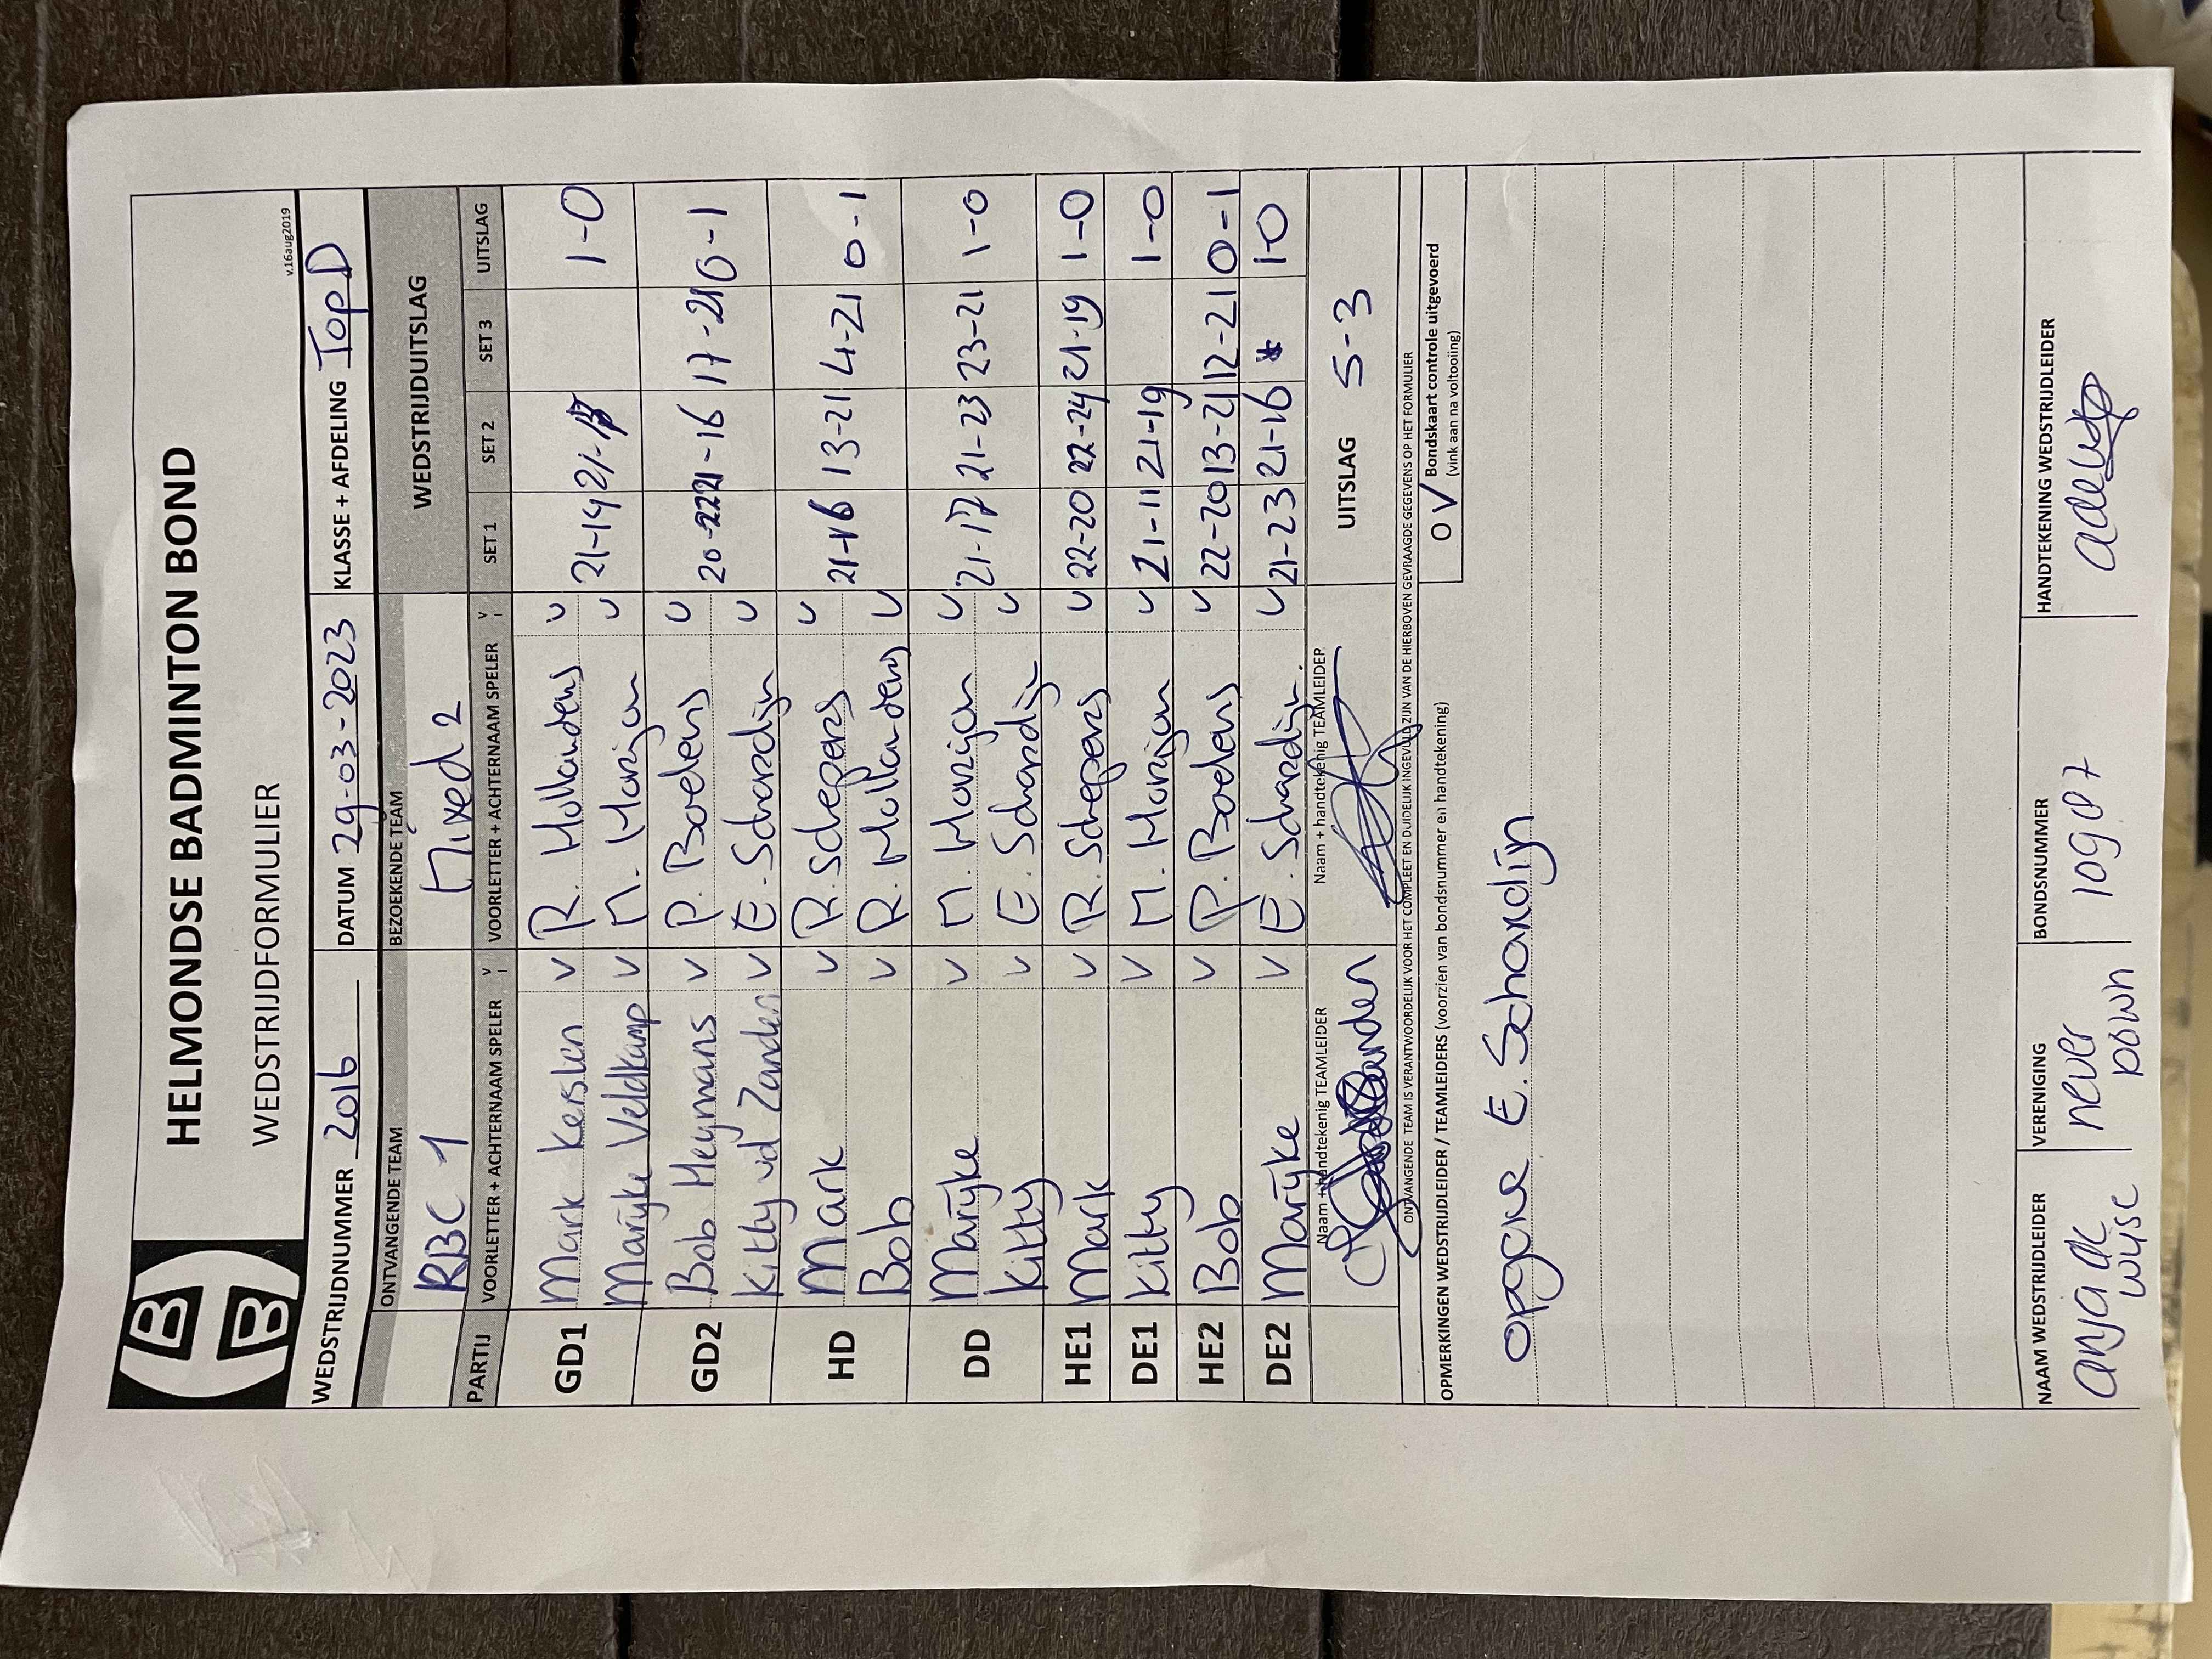 HELMONDSE BADMINTON BOND
WEDSTRIJDFORMULIER
v.16aug2019
WEDSTRIJDNUMMER 2016 DATUM 29-03-2023 KLASSE + AFDELING Top D
ONTVANGENDE TEAM BEZOEKENDE TEAM WEDSTRIJDUITSLAG
RBC 1 Mixed 2
PARTIJ VOORLETTER + ACHTERNAAM SPELER V VOORLETTER + ACHTERNAAM SPELER V SET 1 SET 2 SET 3 UITSLAG
GD1 Mark Kersten V R. Hollanders V 21-14 21- 1-0
Marijke Veldkamp V M. Marijon V
GD2 Bob Heymans V P. Boelens V 20-22 21-16 17-21 0-1
Kitty vd Zanden V E. Schardijn V
HD Mark V R. Schepers V 21-16 13-21 4-21 0-1
Bob V R. Hollanders V
DD Marijke V M. Marijon V 21-17 21-23 23-21 1-0
Kitty V E. Schardijn V
HE1 Mark V R. Schepers V 22-20 22-24 21-19 1-0
DE1 Kitty V M. Marijon V 21-11 21-19 1-0
HE2 Bob V P. Boelens V 22-20 13-21 12-21 0-1
DE2 Marijke V E. Schardijn. V 21-23 21-16 * 1-0
Naam + handtekenig TEAMLEIDER Naam + handtekenig TEAMLEIDER UITSLAG 5-3
ONTVANGENDE TEAM IS VERANTWOORDELIJK VOOR HET COMPLEET EN DUIDELIJK INGEVULD ZIJN VAN DE HIERBOVEN GEVRAAGDE GEGEVENS OP HET FORMULIER
OPMERKINGEN WEDSTRIJDLEIDER / TEAMLEIDERS (voorzien van bondsnummer en handtekening) O V Bondskaart controle uitgevoerd
(vink aan na voltooiing)
opgave E. Schardijn
NAAM WEDSTRIJDLEIDER VERENIGING BONDSNUMMER HANDTEKENING WEDSTRIJDLEIDER
anja de never 10987
wijse down